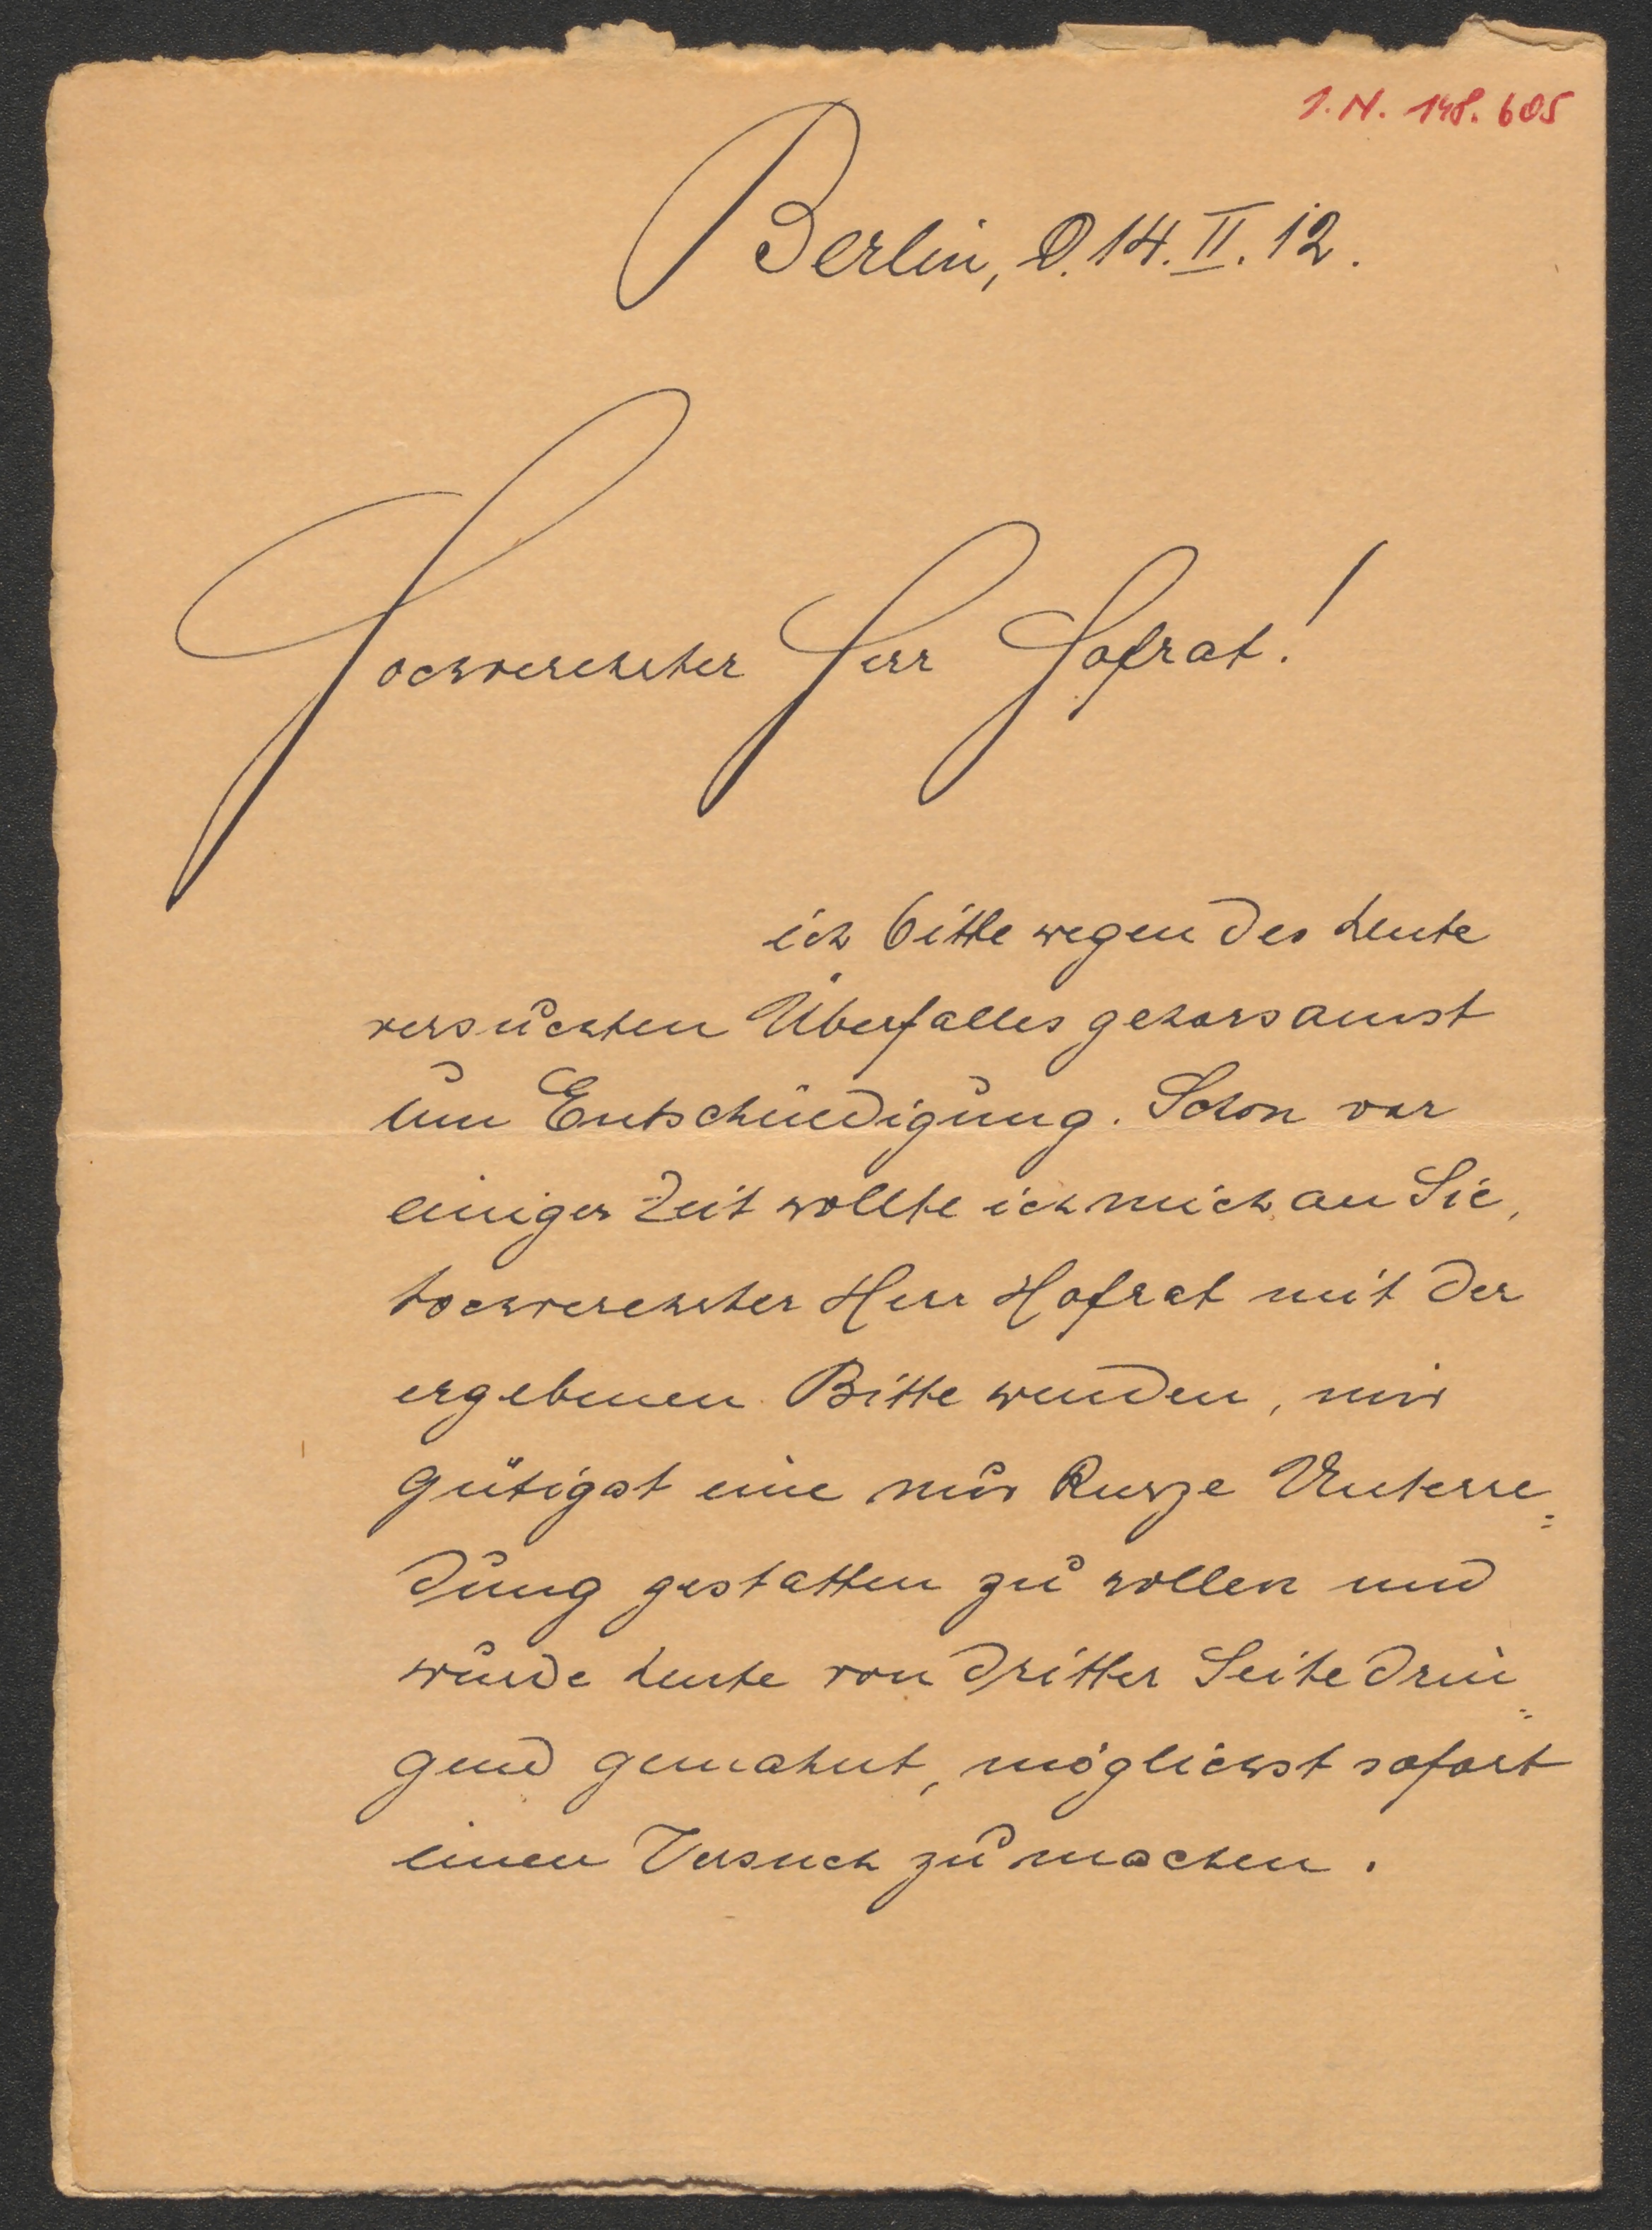 I.N. 148.605
Berlin, d. 14. II. 12.
Hochverehrter Herr Hofrat!
ich bitte wegen des heute
versuchten Überfalles gehorsamst
um Entschuldigung. Schon vor
einiger Zeit wollte ich mich an Sie,
hochverehrter Herr Hofrat mit der
ergebenen Bitte wenden, mir
gütigst eine nur kurze Unterre=
dung gestatten zu wollen und
wurde heute von dritter Seite drin=
gend gemahnt, möglichst sofort
einen Versuch zu machen.